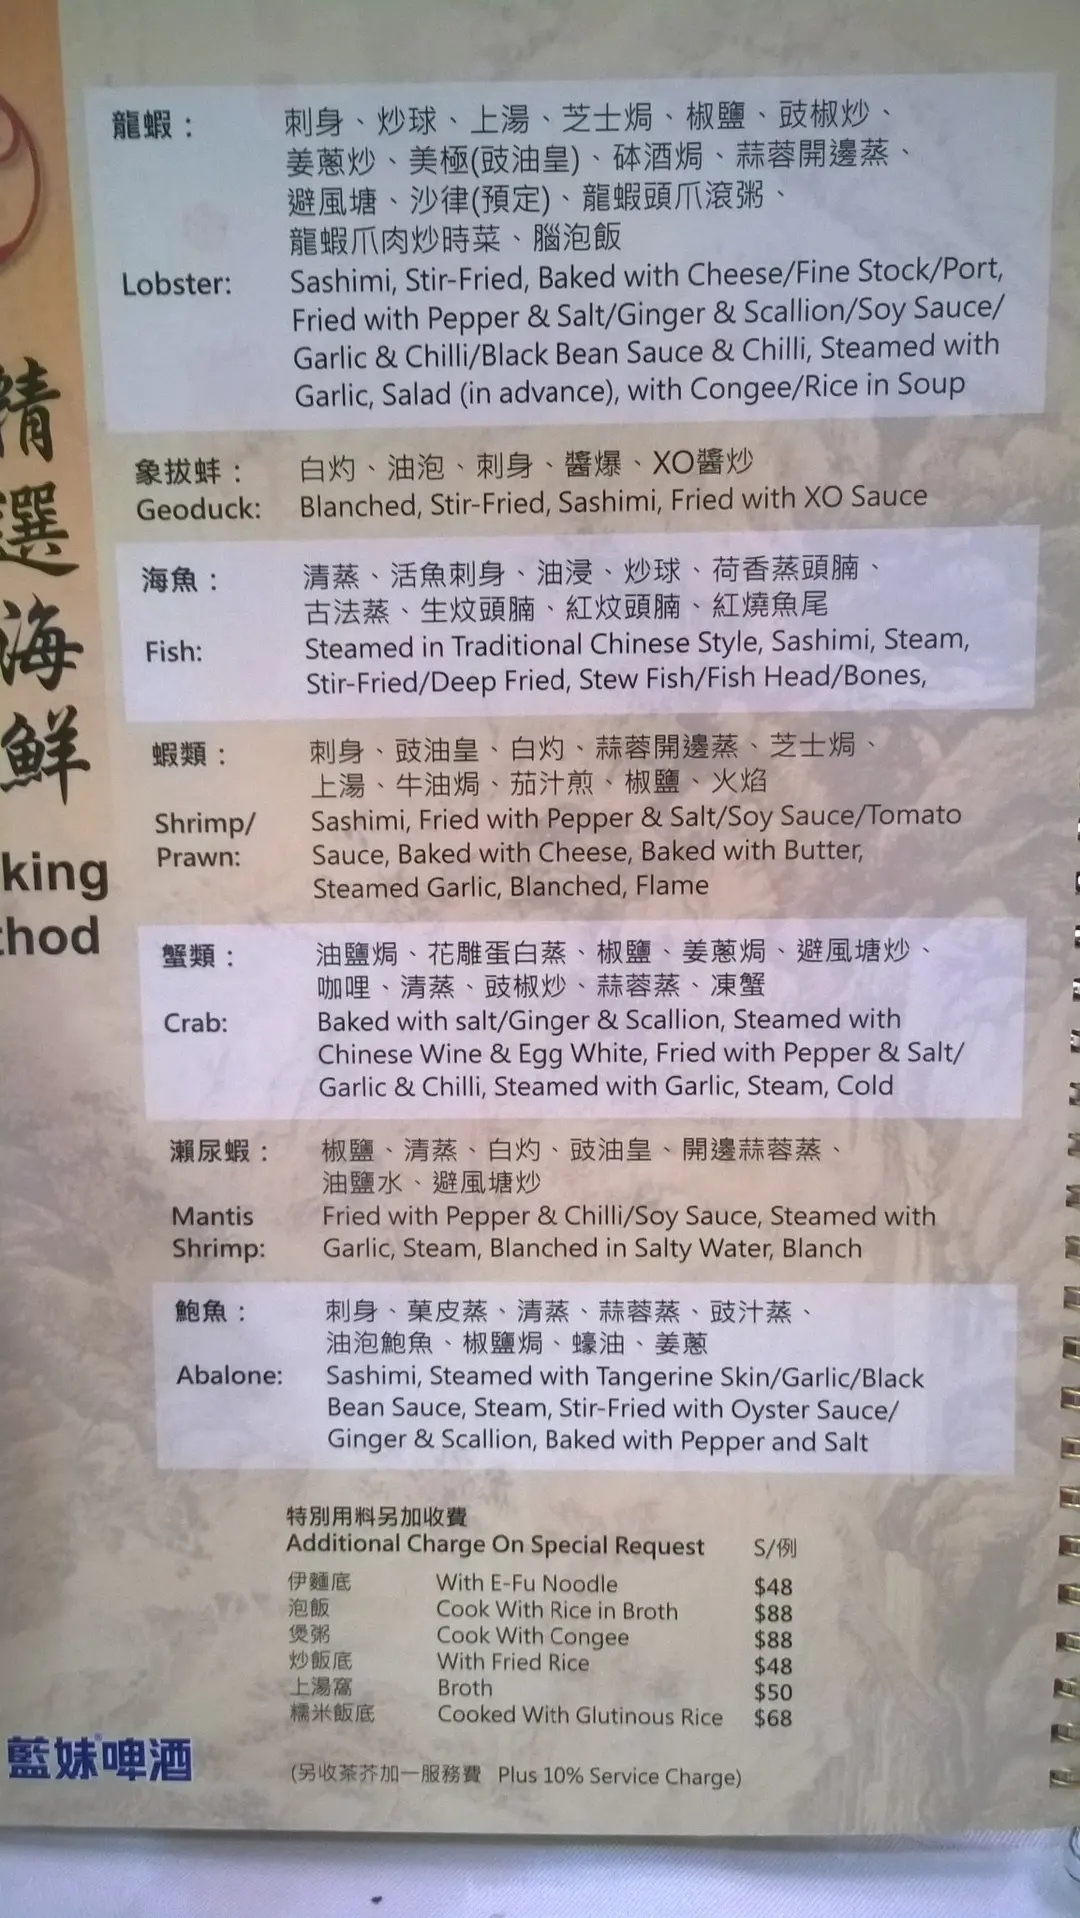 精選海鮮
king
thod
龍蝦：
刺身、炒球、上湯、芝士焗、椒鹽、豉椒炒、
姜蔥炒、美極(豉油皇)、砵酒焗、蒜蓉開邊蒸、
避風塘、沙律(預定)、龍蝦頭爪滾粥、
龍蝦爪肉炒時菜、腦泡飯
Lobster: Sashimi, Stir-Fried, Baked with Cheese/Fine Stock/Port,
Fried with Pepper & Salt/Ginger & Scallion/Soy Sauce/
Garlic & Chilli/Black Bean Sauce & Chilli, Steamed with
Garlic, Salad (in advance), with Congee/Rice in Soup
象拔蚌： 白灼、油泡、刺身、醬爆、XO醬炒
Geoduck: Blanched, Stir-Fried, Sashimi, Fried with XO Sauce
海魚： 清蒸、活魚刺身、油浸、炒球、荷香蒸頭腩、
古法蒸、生炆頭腩、紅炆頭腩、紅燒魚尾
Fish: Steamed in Traditional Chinese Style, Sashimi, Steam,
Stir-Fried/Deep Fried, Stew Fish/Fish Head/Bones,
蝦類： 刺身、豉油皇、白灼、蒜蓉開邊蒸、芝士焗、
上湯、牛油焗、茄汁煎、椒鹽、火焰
Shrimp/ Sashimi, Fried with Pepper & Salt/Soy Sauce/Tomato
Prawn: Sauce, Baked with Cheese, Baked with Butter,
Steamed Garlic, Blanched, Flame
蟹類： 油鹽焗、花雕蛋白蒸、椒鹽、姜蔥焗、避風塘炒、
咖哩、清蒸、豉椒炒、蒜蓉蒸、凍蟹
Crab: Baked with salt/Ginger & Scallion, Steamed with
Chinese Wine & Egg White, Fried with Pepper & Salt/
Garlic & Chilli, Steamed with Garlic, Steam, Cold
瀨尿蝦： 椒鹽、清蒸、白灼、豉油皇、開邊蒜蓉蒸、
油鹽水、避風塘炒
Mantis Fried with Pepper & Chilli/Soy Sauce, Steamed with
Shrimp: Garlic, Steam, Blanched in Salty Water, Blanch
鮑魚： 刺身、菓皮蒸、清蒸、蒜蓉蒸、豉汁蒸、
油泡鮑魚、椒鹽焗、蠔油、姜蔥
Abalone: Sashimi, Steamed with Tangerine Skin/Garlic/Black
Bean Sauce, Steam, Stir-Fried with Oyster Sauce/
Ginger & Scallion, Baked with Pepper and Salt
特別用料另加收費
Additional Charge On Special Request S/例
伊麵底 With E-Fu Noodle $48
泡飯 Cook With Rice in Broth $88
煲粥 Cook With Congee $88
炒飯底 With Fried Rice $48
上湯窩 Broth $50
糯米飯底 Cooked With Glutinous Rice $68
藍妹啤酒
(另收茶芥加一服務費 Plus 10% Service Charge)